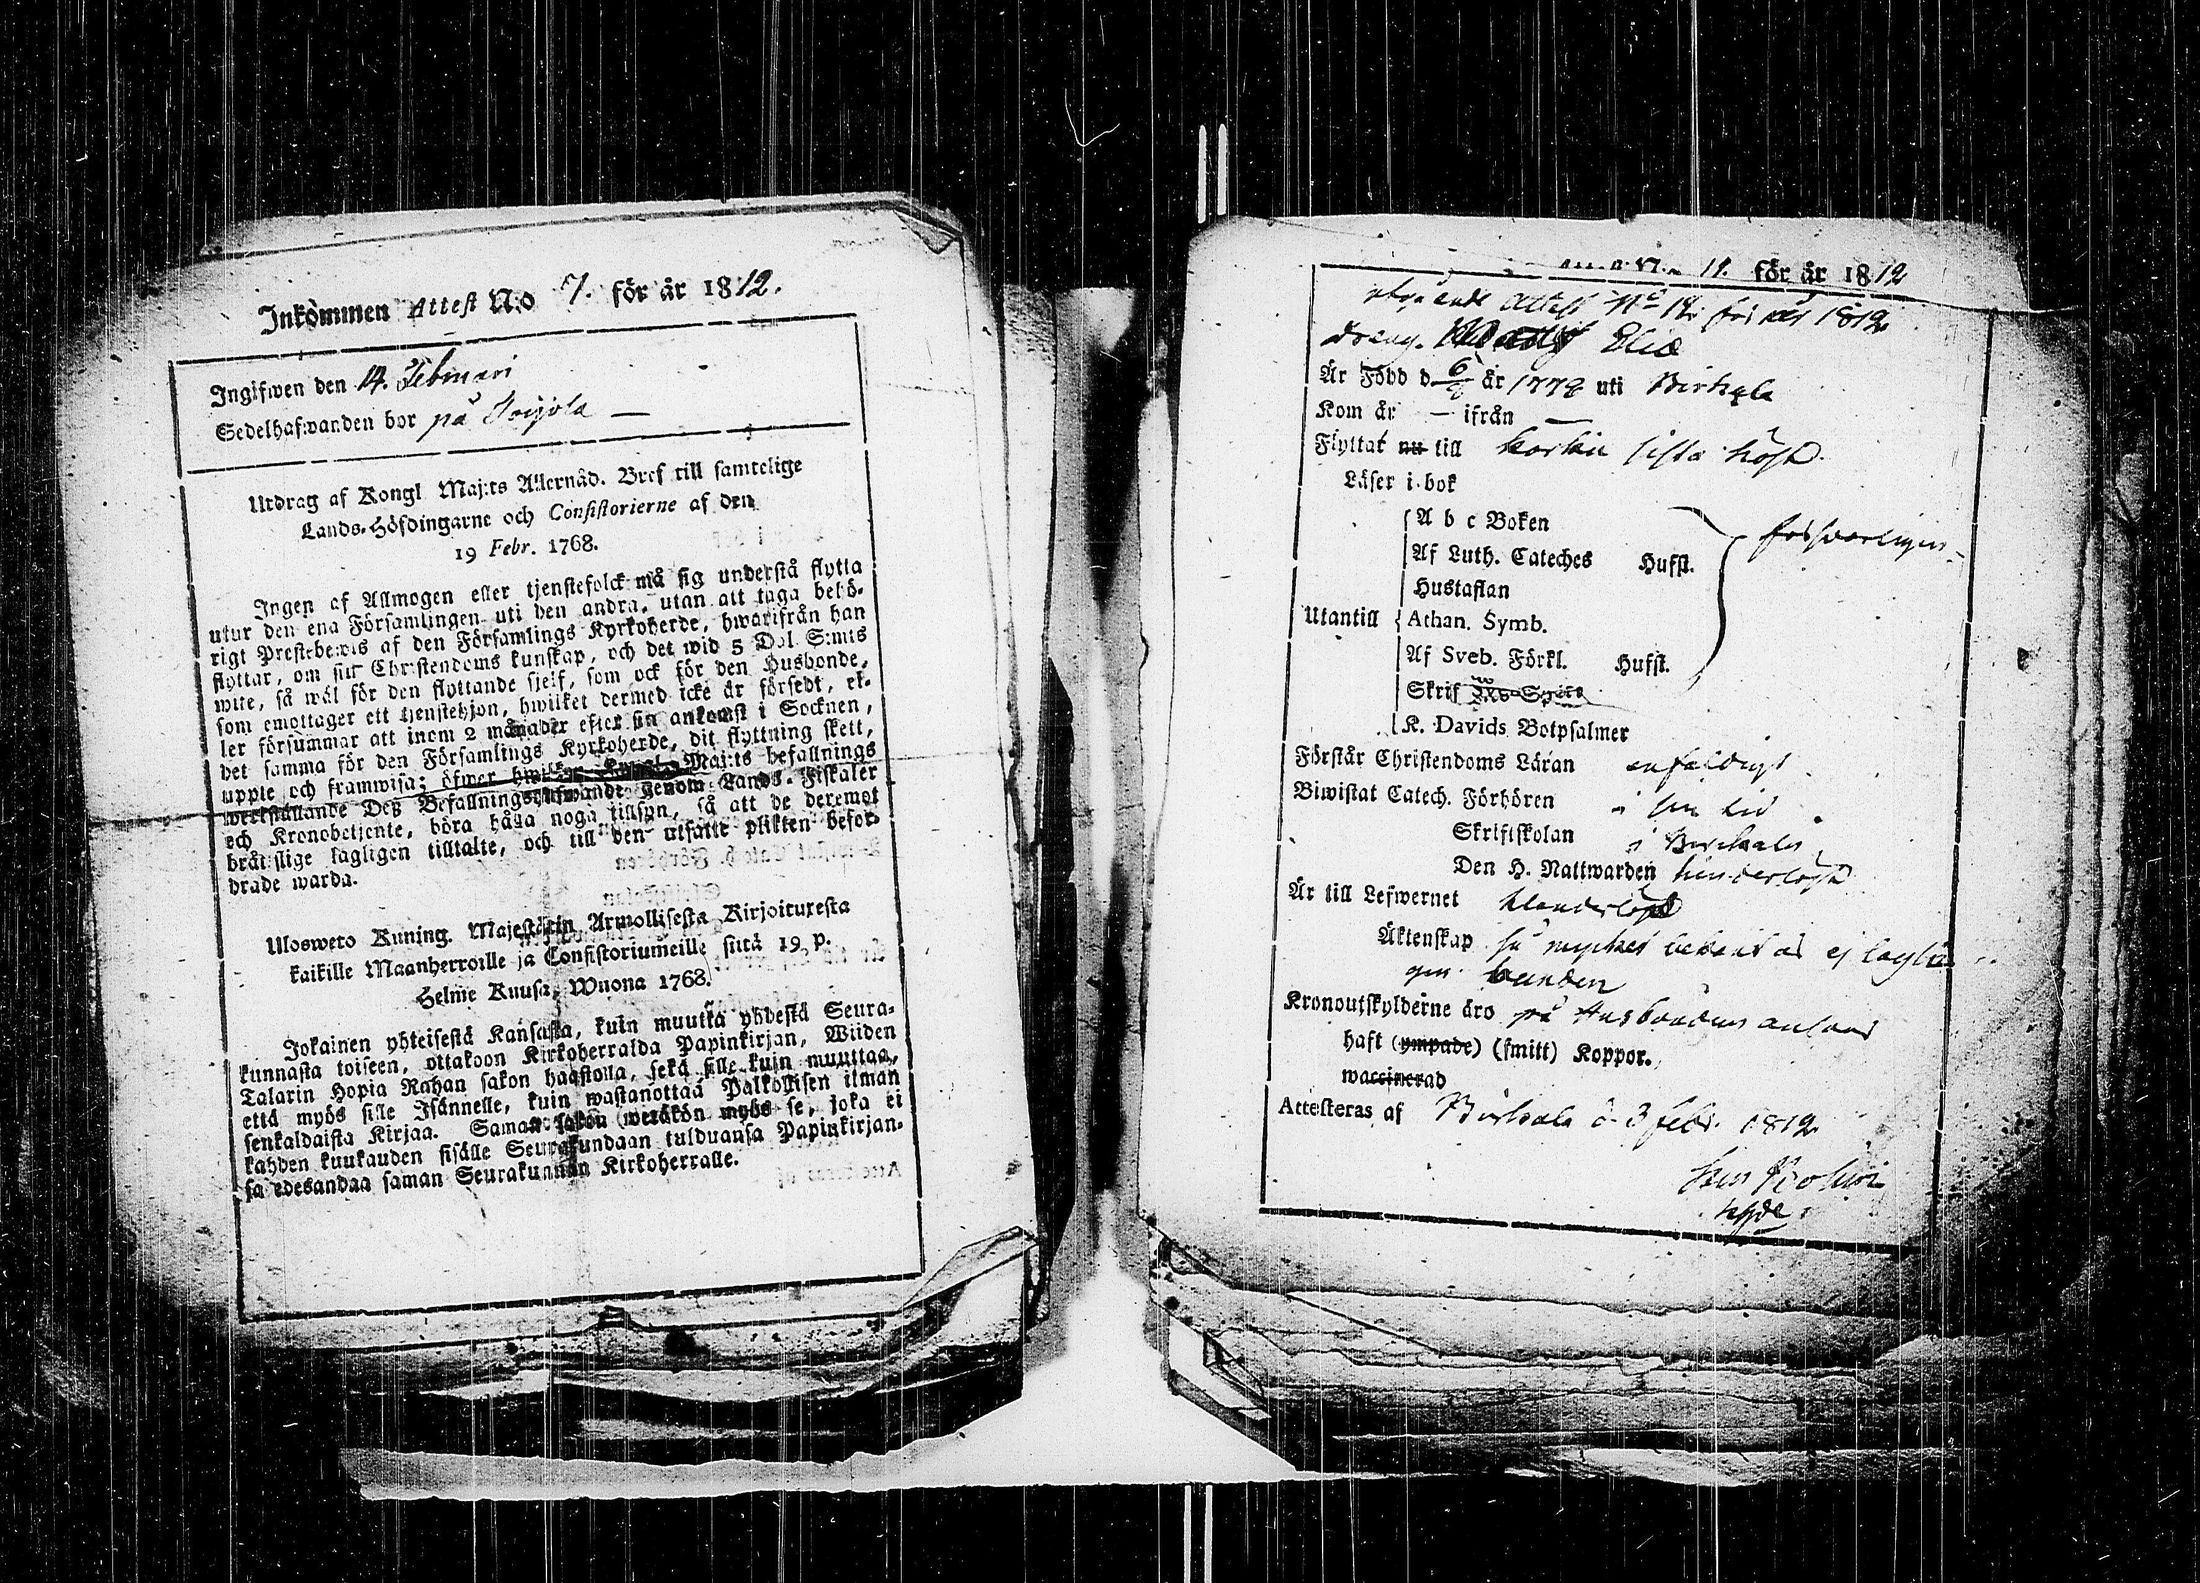 Inkommen Attest N:o 7. för år 1812.
Ingifwen den 14. Februari
Sedelhafwanden bor på
Utdrag af Kongl Maj:ts Allernåd. Bref till samtelige
Lands-Höfdingarne och Consistorierne af den
19 Febr. 1768.
Ingen af Allmogen eller tjenstefolck må sig understå flytta
utur den ena Församlingen uti den andra, utan att taga behö-
rigt Prestebewis af den Församlings Kyrkoherde, hwarifrån han
flyttar, om sitt Christendoms kunskap, och det wid 5 Dal. S:mts
wite, så wäl för den flyttande sjelf, som ock för den Husbonde,
som emottager ett tjenstehjon, hwilket dermed icke är försedt, el-
ler försummar att inom 2 månader efter sin ankomst i Socknen,
det samma för den Församlings Kyrkoherde, dit flyttning skett,
uppte och framwisa; öfwer hwilken Kongl. Maj:ts befallnings
werkställande Deß Befallningshafwande genom Lands-Fiskaler
och Kronobetjente, böra hålla noga tillsyn, så att de deremot
brätslige lagligen tilltalte, och till den utsatte plikten befor-
drade warda.
Ulosweto Kuning. Majestätin Armollisesta Kirjoituxesta
kaikille Maanherroille ja Consistoriumeille siitä 19 p.
Helme Kuusa, Wuona 1768.
Jokainen yhteisestä Kansasta, kuin muutta yhdestä Seura-
kunnasta toiseen, ottakoon Kirkoherralda Papinkirjan, Wiiden
Talarin Hopia Rahan sakon haastolla, sekä sille kuin muuttaa,
että myös sille Isännelle, kuin wastanottaa Palkollisen ilman
senkaldaista Kirjaa. Saman sakon wetäkön myös se, joka ei
kahden kuukauden sisälle Seurakundaan tulduansa Papinkirjan-
sa edesandaa saman Seurakunnan Kirkoherralle.
N:o 11. för år 1812
Attest N:o för år 1812
dreng. Eliæ
Är Född d 6 år uti Birkala
Kom år — ifrån —
Flyttat nu till sista höst
Läser i bok
A b c Boken försvarligen
Af Luth. Cateches Hufst.
Hustaflan
Utantill Athan. Symb.
Af Sveb. Förkl. Hufst.
Skrif
K. Davids Botpsalmer
Förstår Christendoms Läran enfaldigt
Biwistat Catech. Förhören i sin tid
Skriftskolan i Birkala
Den H. Nattwarden hinderlöst
Är till Lefwernet klanderlös
Äktenskap så mycket bekant är ej lagli
gen bunden
Kronoutskylderne äro på Husbondens answar
haft (ympade) (smitt) Koppor.
waccinerad
Attesteras af Birkala d 3 febr. 1812